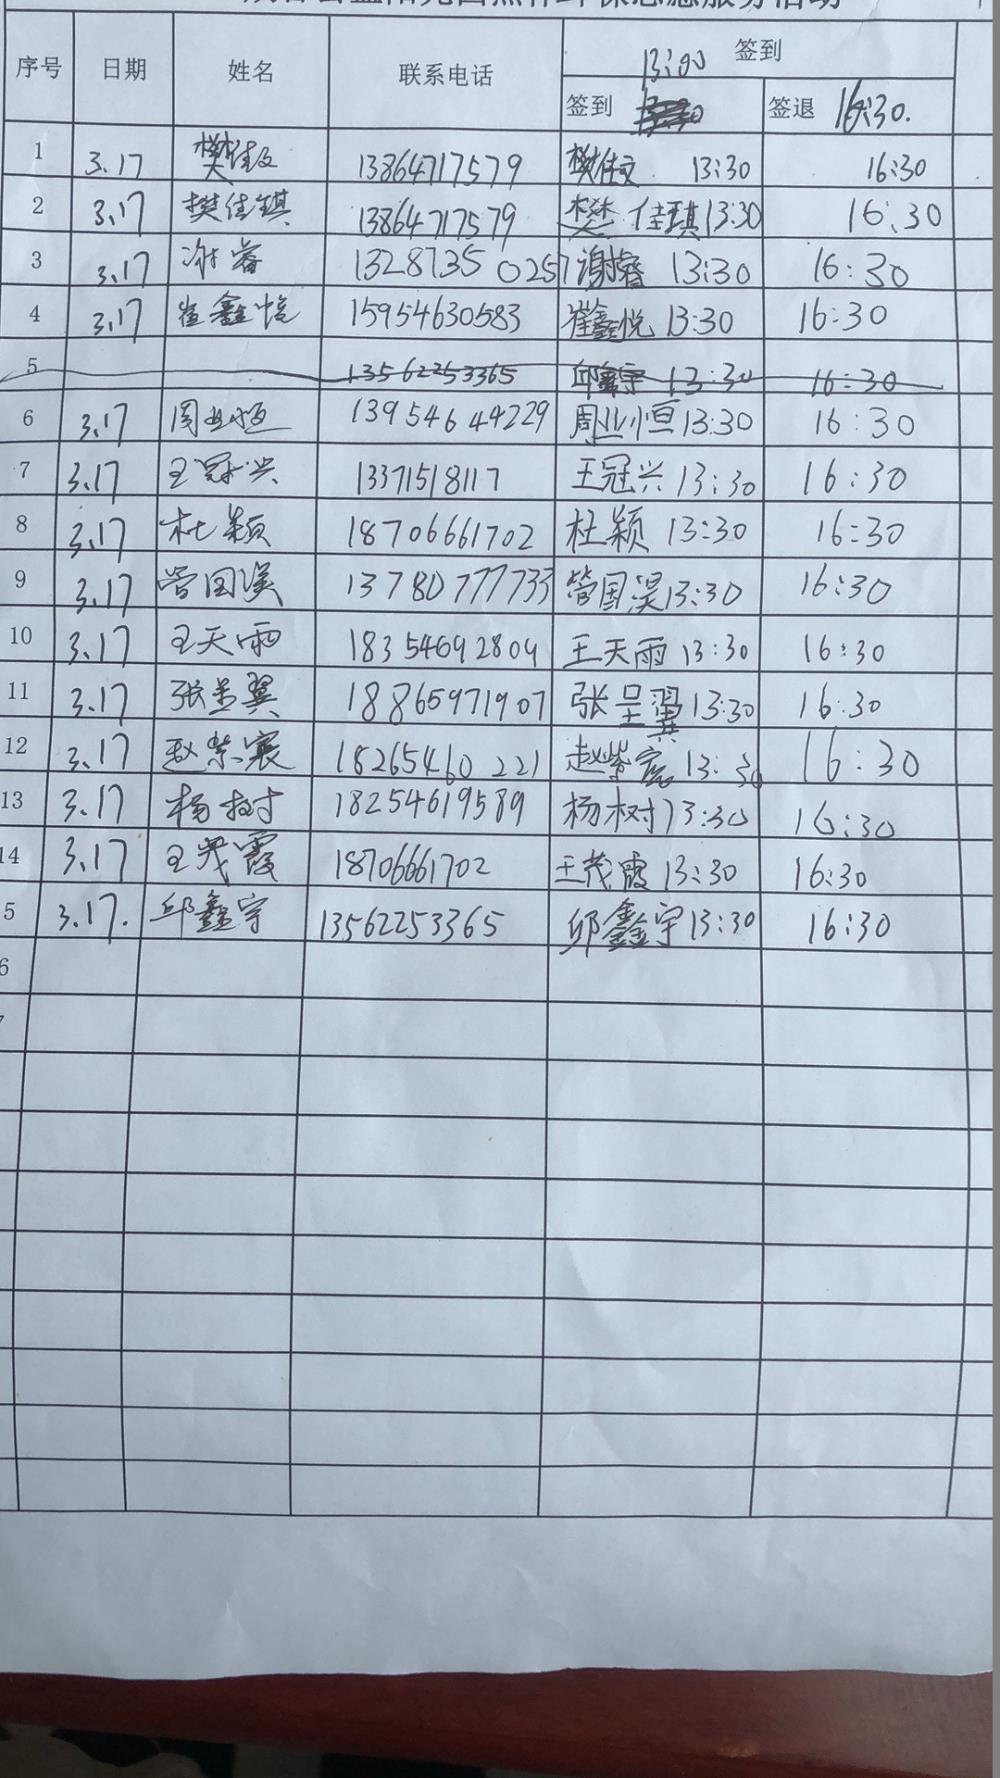 序号 日期 姓名 联系电话 签到
13:00
签到 签退 16:30.
1 3.17 樊佳文 13864717579 樊佳文 13:30 16:30
2 3.17 樊佳琪 13864717579 樊佳琪 13:30 16:30
3 3.17 谢睿 13287350257 谢睿 13:30 16:30
4 3.17 崔鑫悦 15954630583 崔鑫悦 13:30 16:30
5 13562253365 邱鑫宇 13:30 16:30
6 3.17 周业恒 13954644229 周业恒 13:30 16:30
7 3.17 王冠兴 13371518117 王冠兴 13:30 16:30
8 3.17 杜颖 18706661702 杜颖 13:30 16:30
9 3.17 管国淏 13780777733 管国淏 13:30 16:30
10 3.17 王天雨 18354692809 王天雨 13:30 16:30
11 3.17 张呈翼 18865971907 张呈翼 13:30 16:30
12 3.17 赵紫宸 18265460221 赵紫宸 13:30 16:30
13 3.17 杨树 18254619589 杨树 13:30 16:30
14 3.17 王茂霞 18706661702 王茂霞 13:30 16:30
5 3.17. 邱鑫宇 13562253365 邱鑫宇 13:30 16:30
6
7